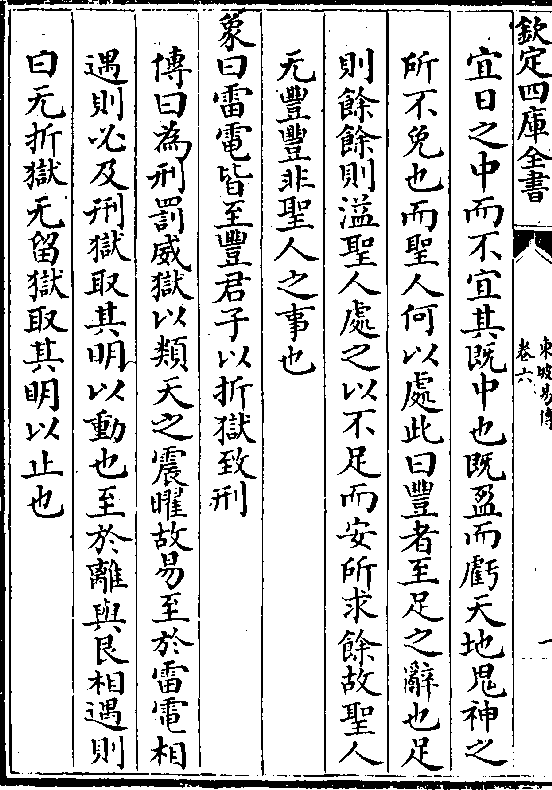 欽定四庫全書
東坡易傳
卷六
一
宜日之中而不宜其既中也既盈而虧天地鬼神之
所不免也而聖人何以處此曰豐者至足之辭也足
則餘餘則溢聖人處之以不足而安所求餘故聖人
无豐豐非聖人之事也
象曰雷電皆至豐君子以折獄致刑
傳曰為刑罰威獄以類天之震曜故易至於雷電相
遇則必及刑獄取其明以動也至於離與艮相遇則
曰无折獄无留獄取其明以止也